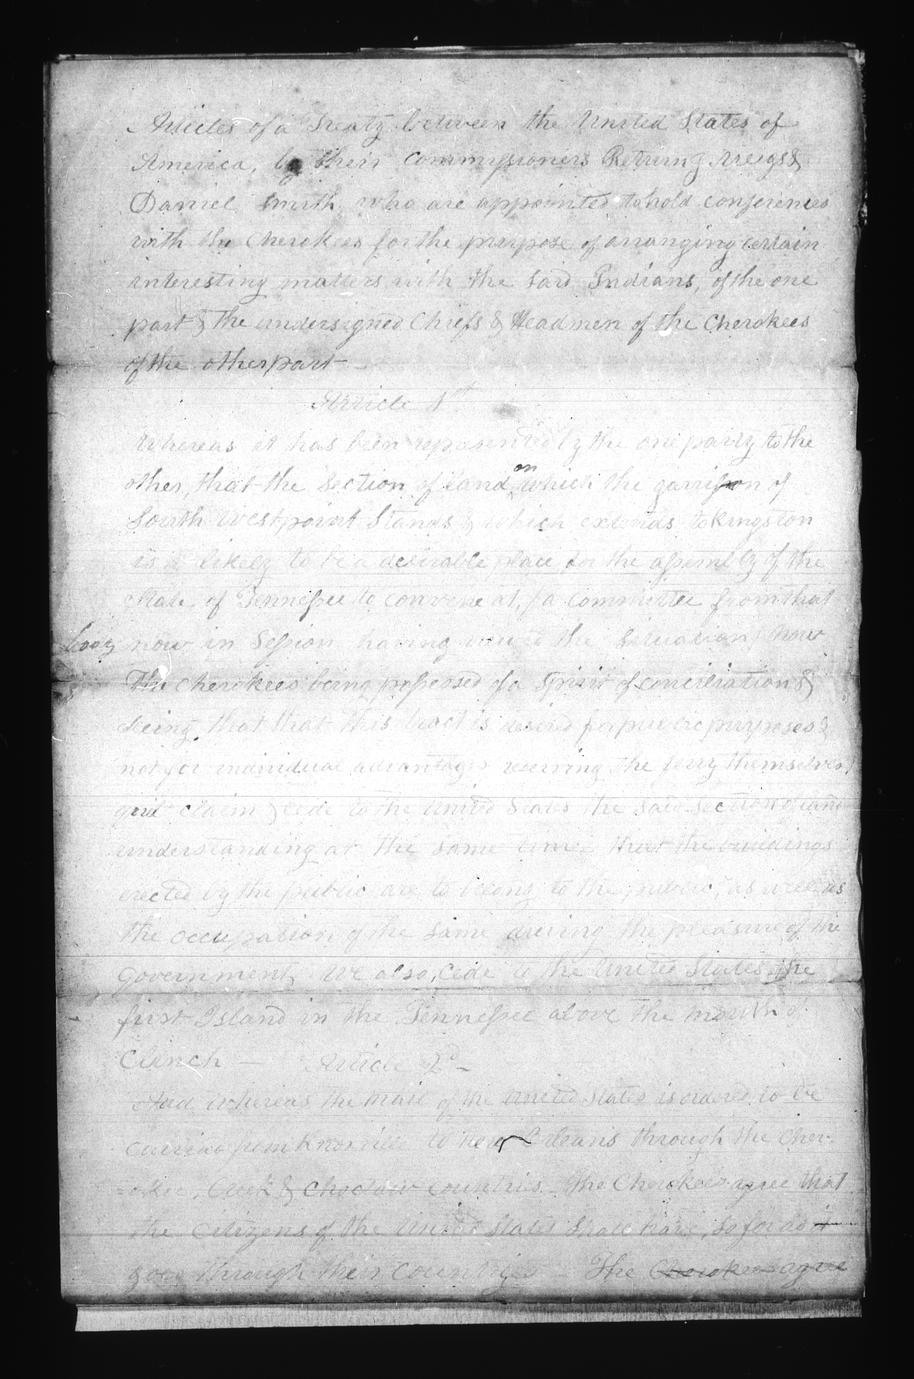 Articles of a Treaty between the United States of
America, by their commissioners Return J. Meigs &
Daniel Smith who are appointed to hold conferences
with the Cherokees for the purpose of arranging certain
interesting matters with the said Indians, of the one
part & the undersigned Chiefs & Headmen of the Cherokees
of the other part—
Article 1st
Whereas it has been represented by the one party to the
other, that the section of land on which the garrison of
South West point stands & which extends to Kingston
is likely to be a desirable place for the assembly of the
State of Tennessee to convene at, (a committee from that
body now in Session having viewed the situation) now
The Cherokees being possessed of a spirit of conciliation &
seeing that that this tract is desired for public purposes &
not for individual advantages reserving the ferry themselves
quit claim & cede to the United States the said section of land
understanding at the same time that the buildings
erected by the public are to belong to the public, as well as
the occupation of the same during the pleasure of the
Government. We also cede to the United States the
first Island in the Tennessee above the mouth of
Clinch — Article 2d —
And whereas the mail of the United States is ordered to be
carried from Knoxville to New Orleans through the Cher-
okee, Creek & Choctaw countries. The Cherokees agree that
the citizens of the United States shall have, so far as it
goes through their country The Cherokees agree